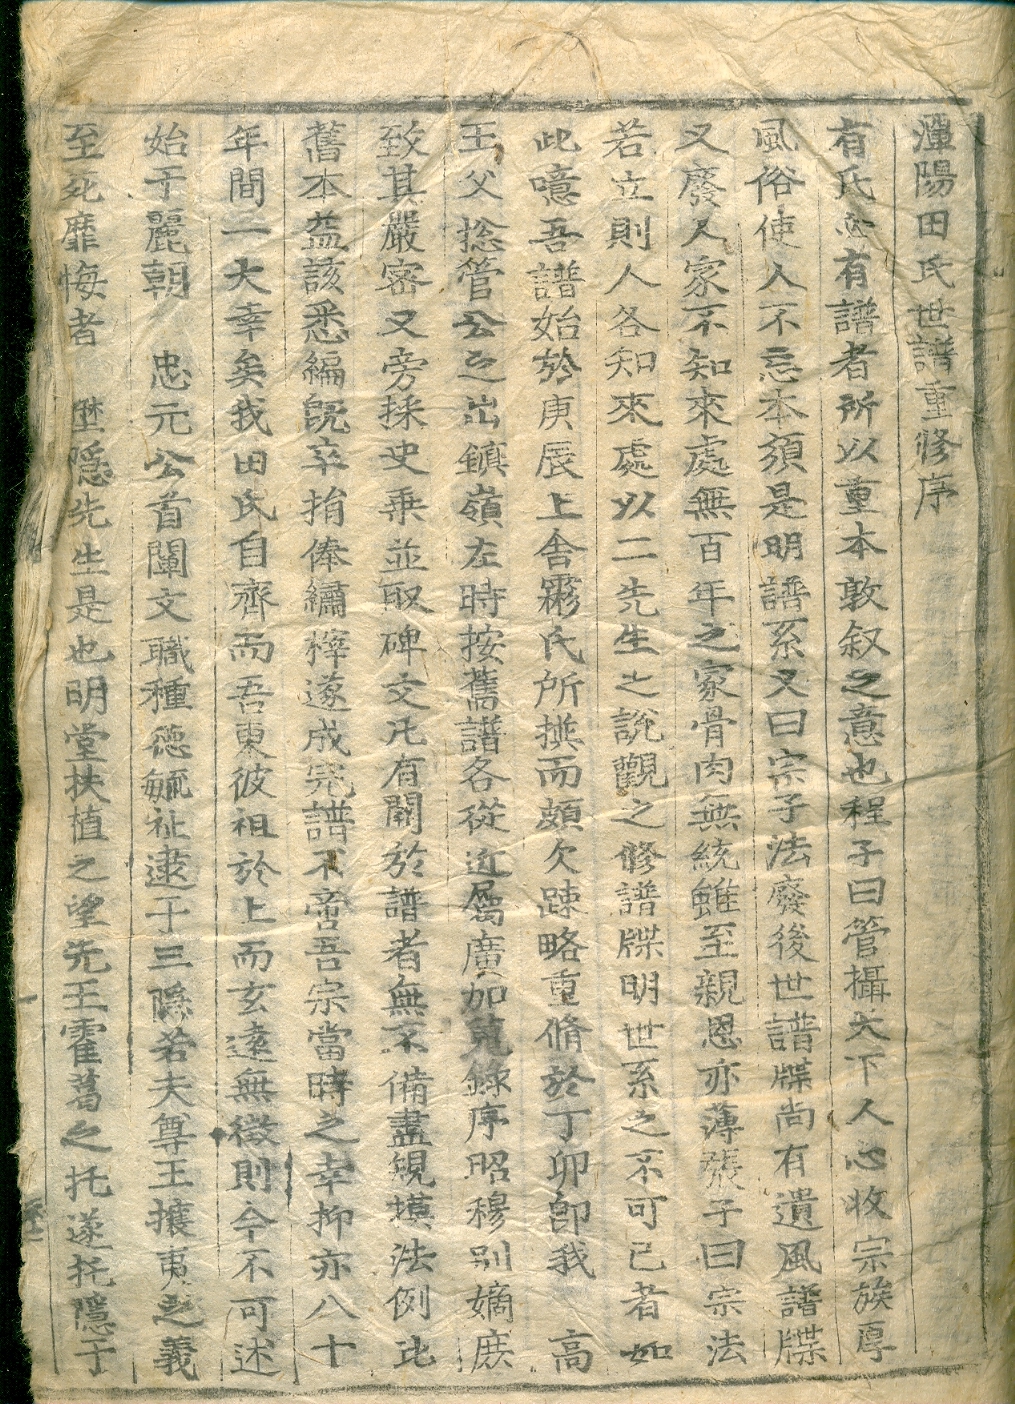 潭陽田氏世譜重修序
有氏必有譜者所以重本敦叙之意也程子曰管攝天下人心收宗族厚
風俗使人不忘本須是明譜系又曰宗子法廢後世譜牒尚有遺風譜牒
又廢人家不知來處無百年之家骨肉無統雖至親恩亦薄張子曰宗法
若立則人各知來處以二先生之說觀之修譜牒明世系之不可已者如
此噫吾譜始於庚辰上舍霦氏所撰而頗欠踈略重脩於丁卯卽我 高
王父捴管公之出鎭嶺左時按舊譜各從近屬廣加蒐錄序昭穆别嫡庶
致其嚴密又旁採史乘並取碑文凡有關於譜者無不備盡䂓模法例比
舊本益該悉編旣卒捐俸繡梓遂成完譜不啻吾宗當時之幸抑亦八十
年間一大幸矣我田氏自齊而吾東彼祖於上而玄遠無徵則今不可述
始于麗朝 忠元公首闡文職種德毓祉逮于三隱若夫尊王攘夷之義
至死靡悔者 壄隱先生是也明堂扶植之望先王霍葛之托遂托隱于